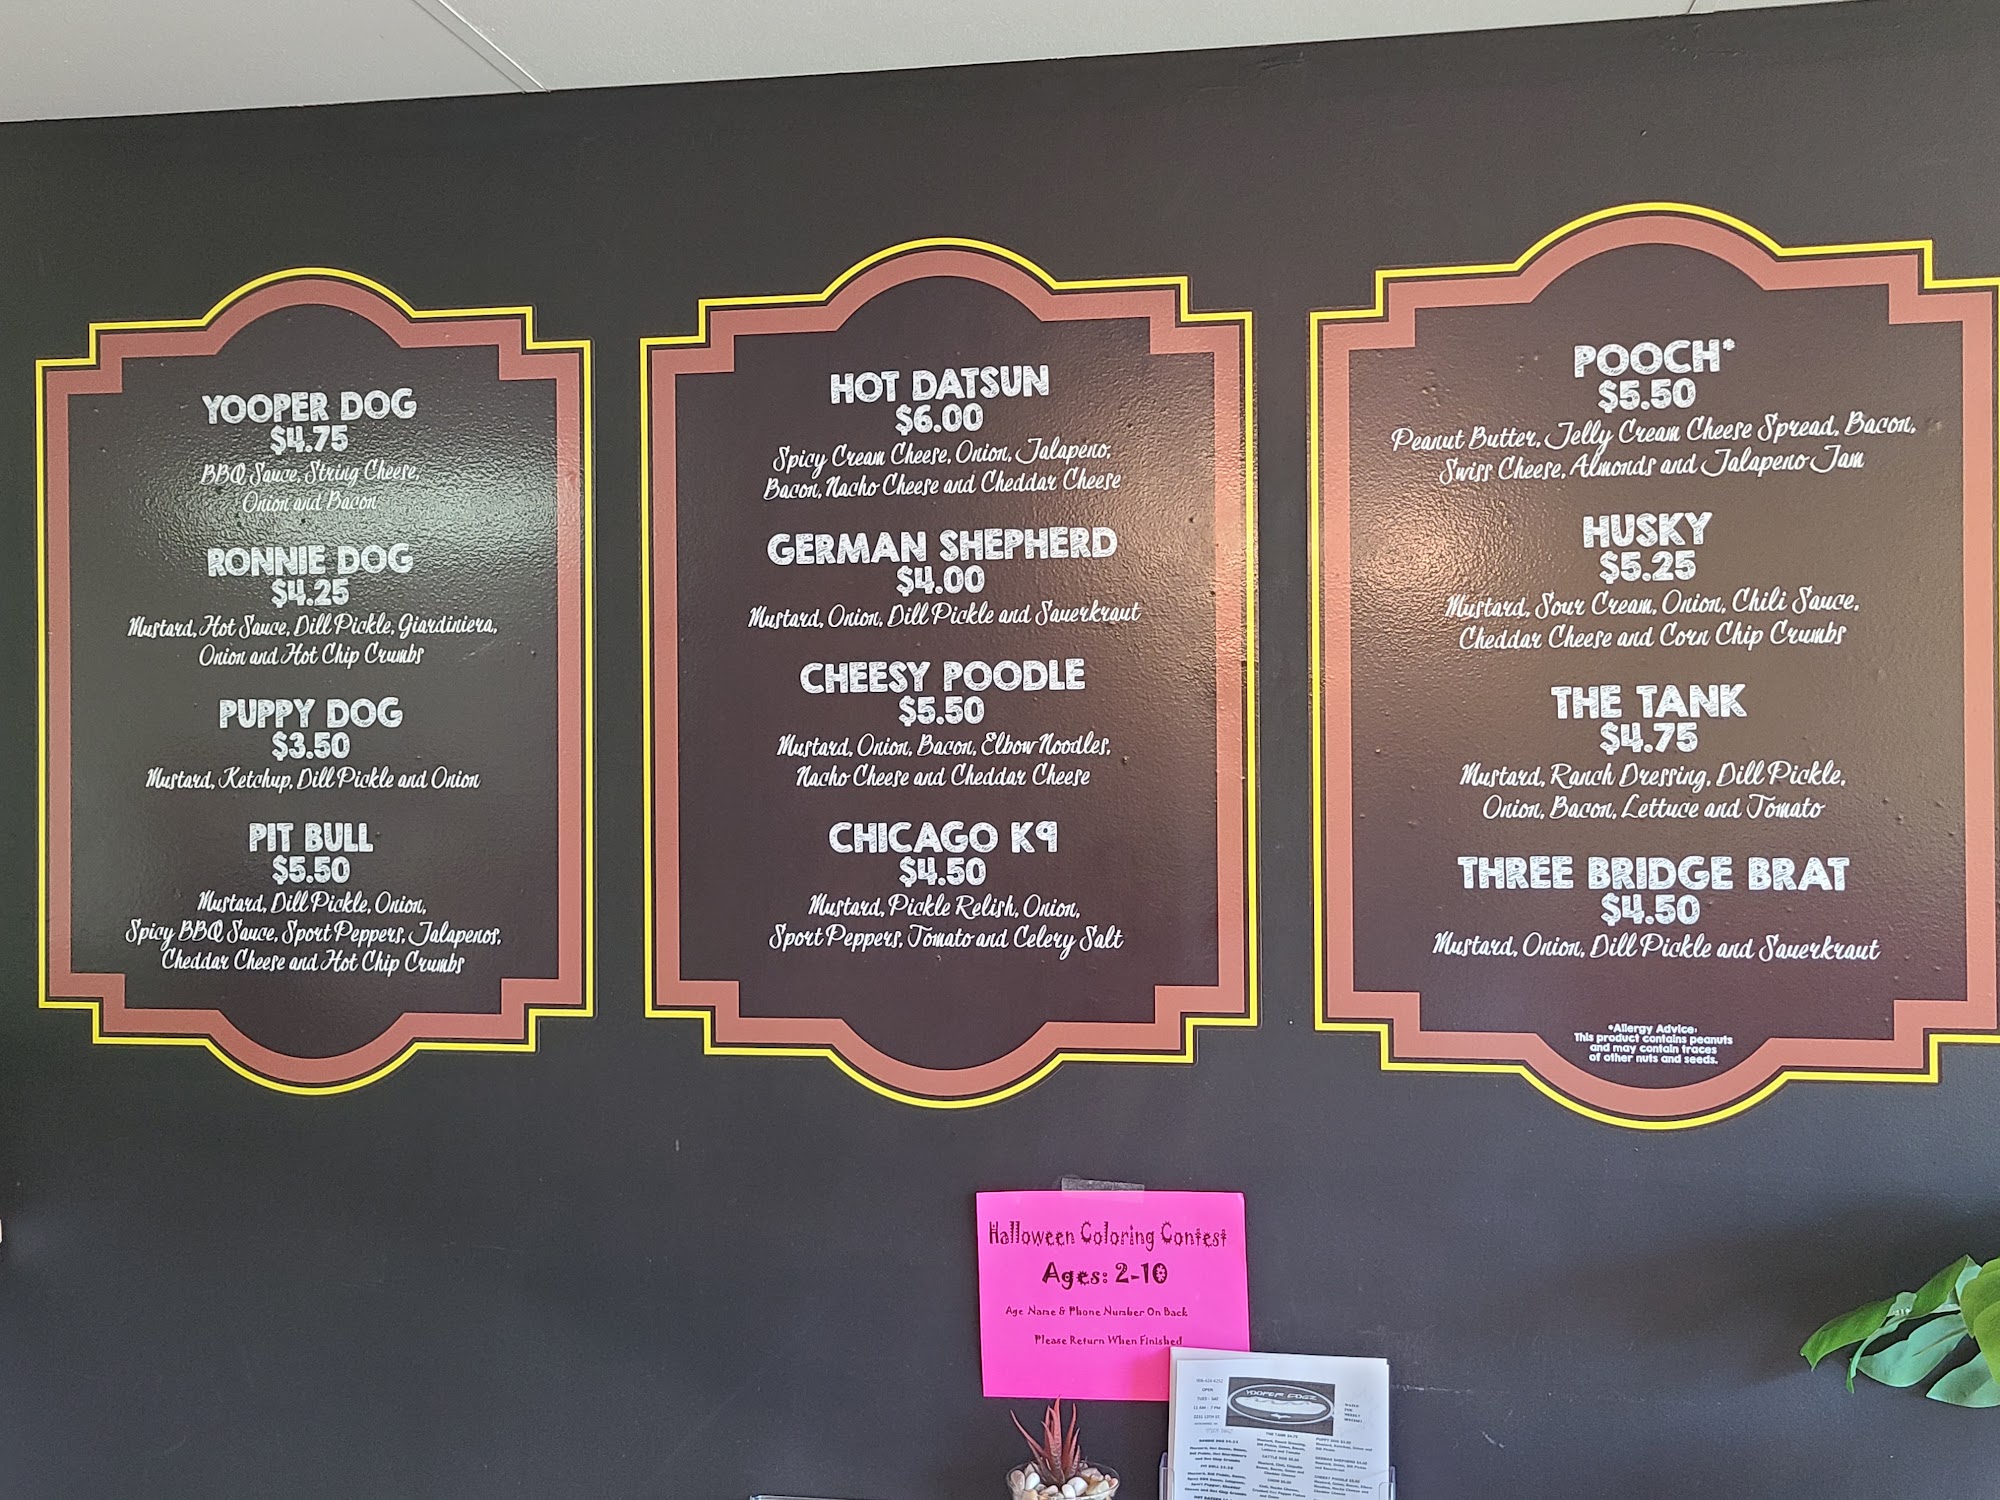 YOOPER DOG
$4.75
BBQ Sauce, String Cheese,
Onion and Bacon
RONNIE DOG
$4.25
Mustard, Hot Sauce, Dill Pickle, Giardiniera,
Onion and Hot Chip Crumbs
PUPPY DOG
$3.50
Mustard, Ketchup, Dill Pickle and Onion
PIT BULL
$5.50
Mustard, Dill Pickle, Onion,
Spicy BBQ Sauce, Sport Peppers, Jalapenos,
Cheddar Cheese and Hot Chip Crumbs
HOT DATSUN
$6.00
Spicy Cream Cheese, Onion, Jalapeno,
Bacon, Nacho Cheese and Cheddar Cheese
GERMAN SHEPHERD
$4.00
Mustard, Onion, Dill Pickle and Sauerkraut
CHEESY POODLE
$5.50
Mustard, Onion, Bacon, Elbow Noodles,
Nacho Cheese and Cheddar Cheese
CHICAGO K9
$4.50
Mustard, Pickle Relish, Onion,
Sport Peppers, Tomato and Celery Salt
POOCH*
$5.50
Peanut Butter, Jelly Cream Cheese Spread, Bacon,
Swiss Cheese, Almonds and Jalapeno Jam
HUSKY
$5.25
Mustard, Sour Cream, Onion, Chili Sauce,
Cheddar Cheese and Corn Chip Crumbs
THE TANK
$4.75
Mustard, Ranch Dressing, Dill Pickle,
Onion, Bacon, Lettuce and Tomato
THREE BRIDGE BRAT
$4.50
Mustard, Onion, Dill Pickle and Sauerkraut
*Allergy Advice:
This product contains peanuts
and may contain traces
of other nuts and seeds.
Halloween Coloring Contest
Ages: 2-10
Age Name & Phone Number On Back
Please Return When Finished
OPEN
TUES - SAT
11 AM - 7 PM
YOOPER DOGZ